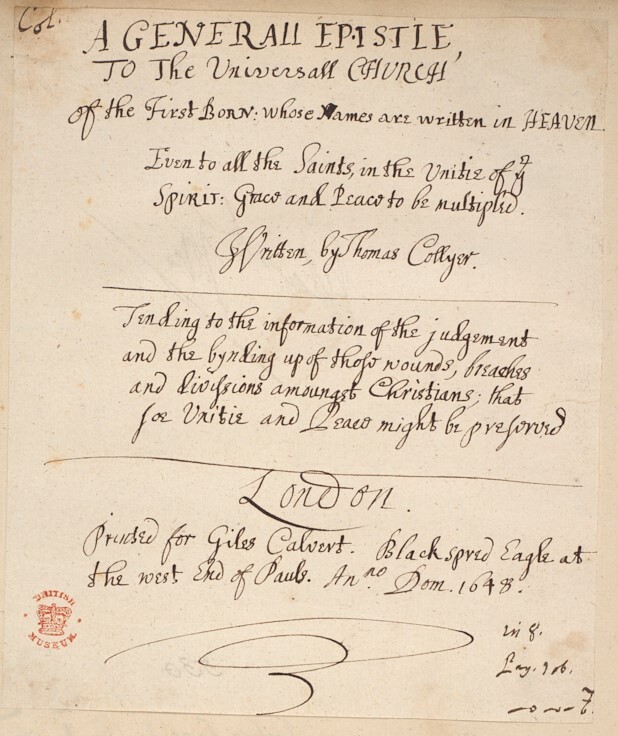 Col.
A GENERAll EPISTLE,
TO The Universall CHURCH
of the First BORN: whose Names are written in HEAVEN.
Even to all the Saints, in the Unitie of ye
SPIRIT: Grace and Peace to be multipled.
Written, by Thomas Collyer.
Tending to the information of the judgement
and the bynding up of those wounds, breaches
and divissions amoungst Christians; that
soe Unitie and Peace might be preserved
London.
Printed for Giles Calvert. Black spred Eagle at
the west End of Pauls. Anno. Dom. 1648.
BRITISH
MUSEUM
in 8.
Pag. 106.